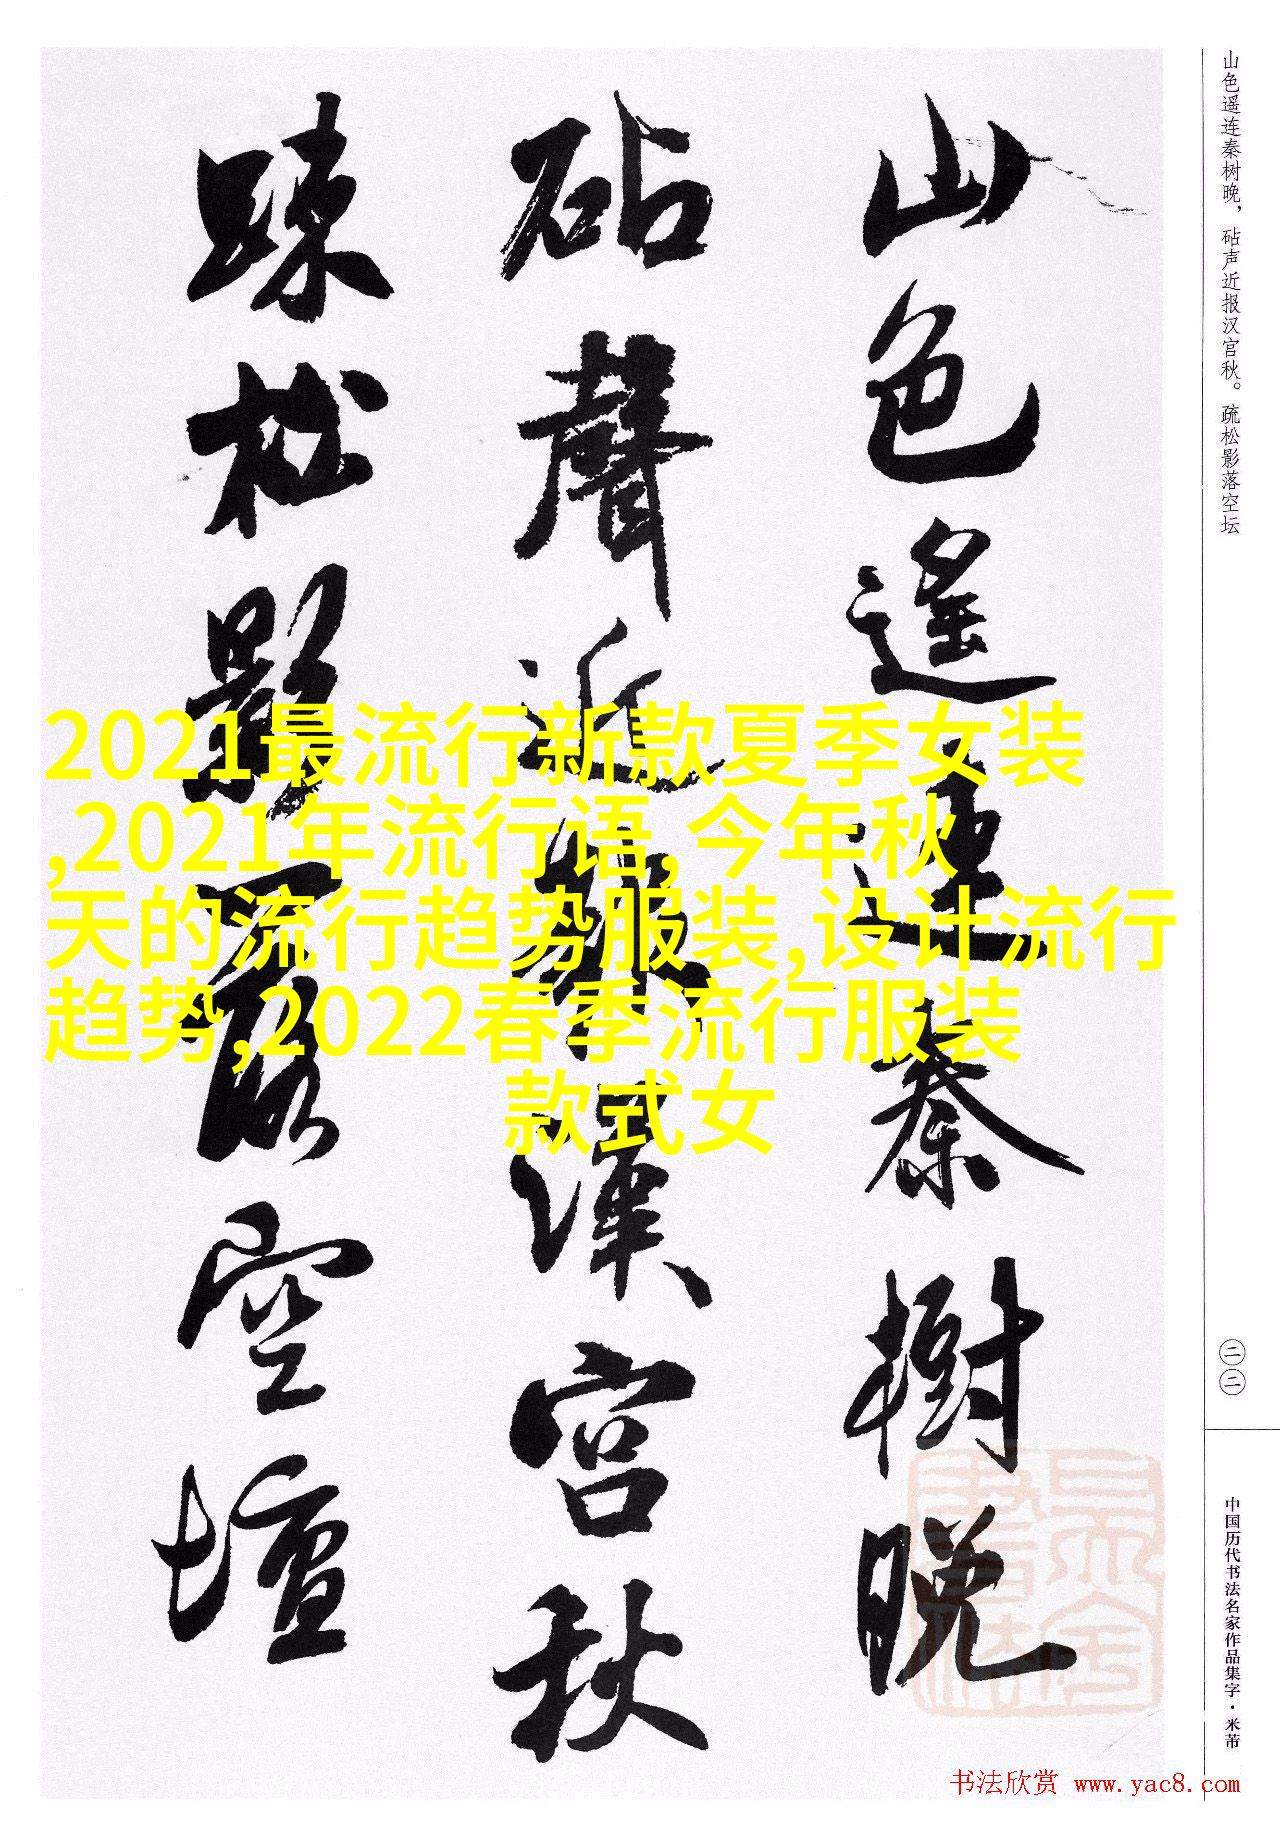 山色遥连秦树晚，砧声近报汉宫秋。疏松影落空坛
山色遙連秦樹晚
砧聲近報漢宮秋
踈松影落空壇
2021最流行新款夏季女装
,2021年流行语,今年秋
天的流行趋势服装,设计流行
趋势,2022春季流行服装
款式女
二二
中国历代书法名家作品集字·米芾
书法欣赏 www.yac8.com